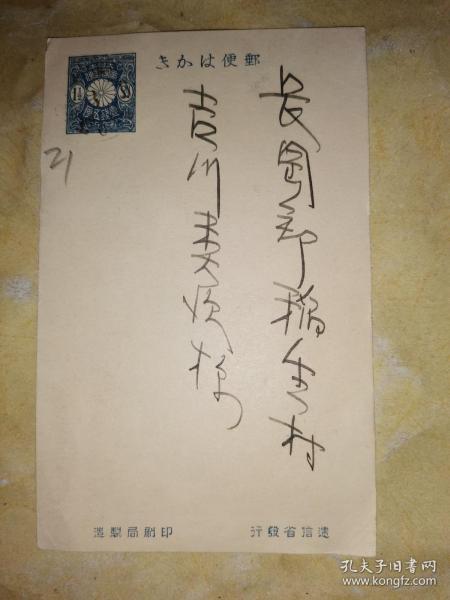 郵便はかき
長岡郡稲生村
吉川 様
21
1½
遞信省發行
印刷局製造
孔夫子旧书网
www.kongfz.com